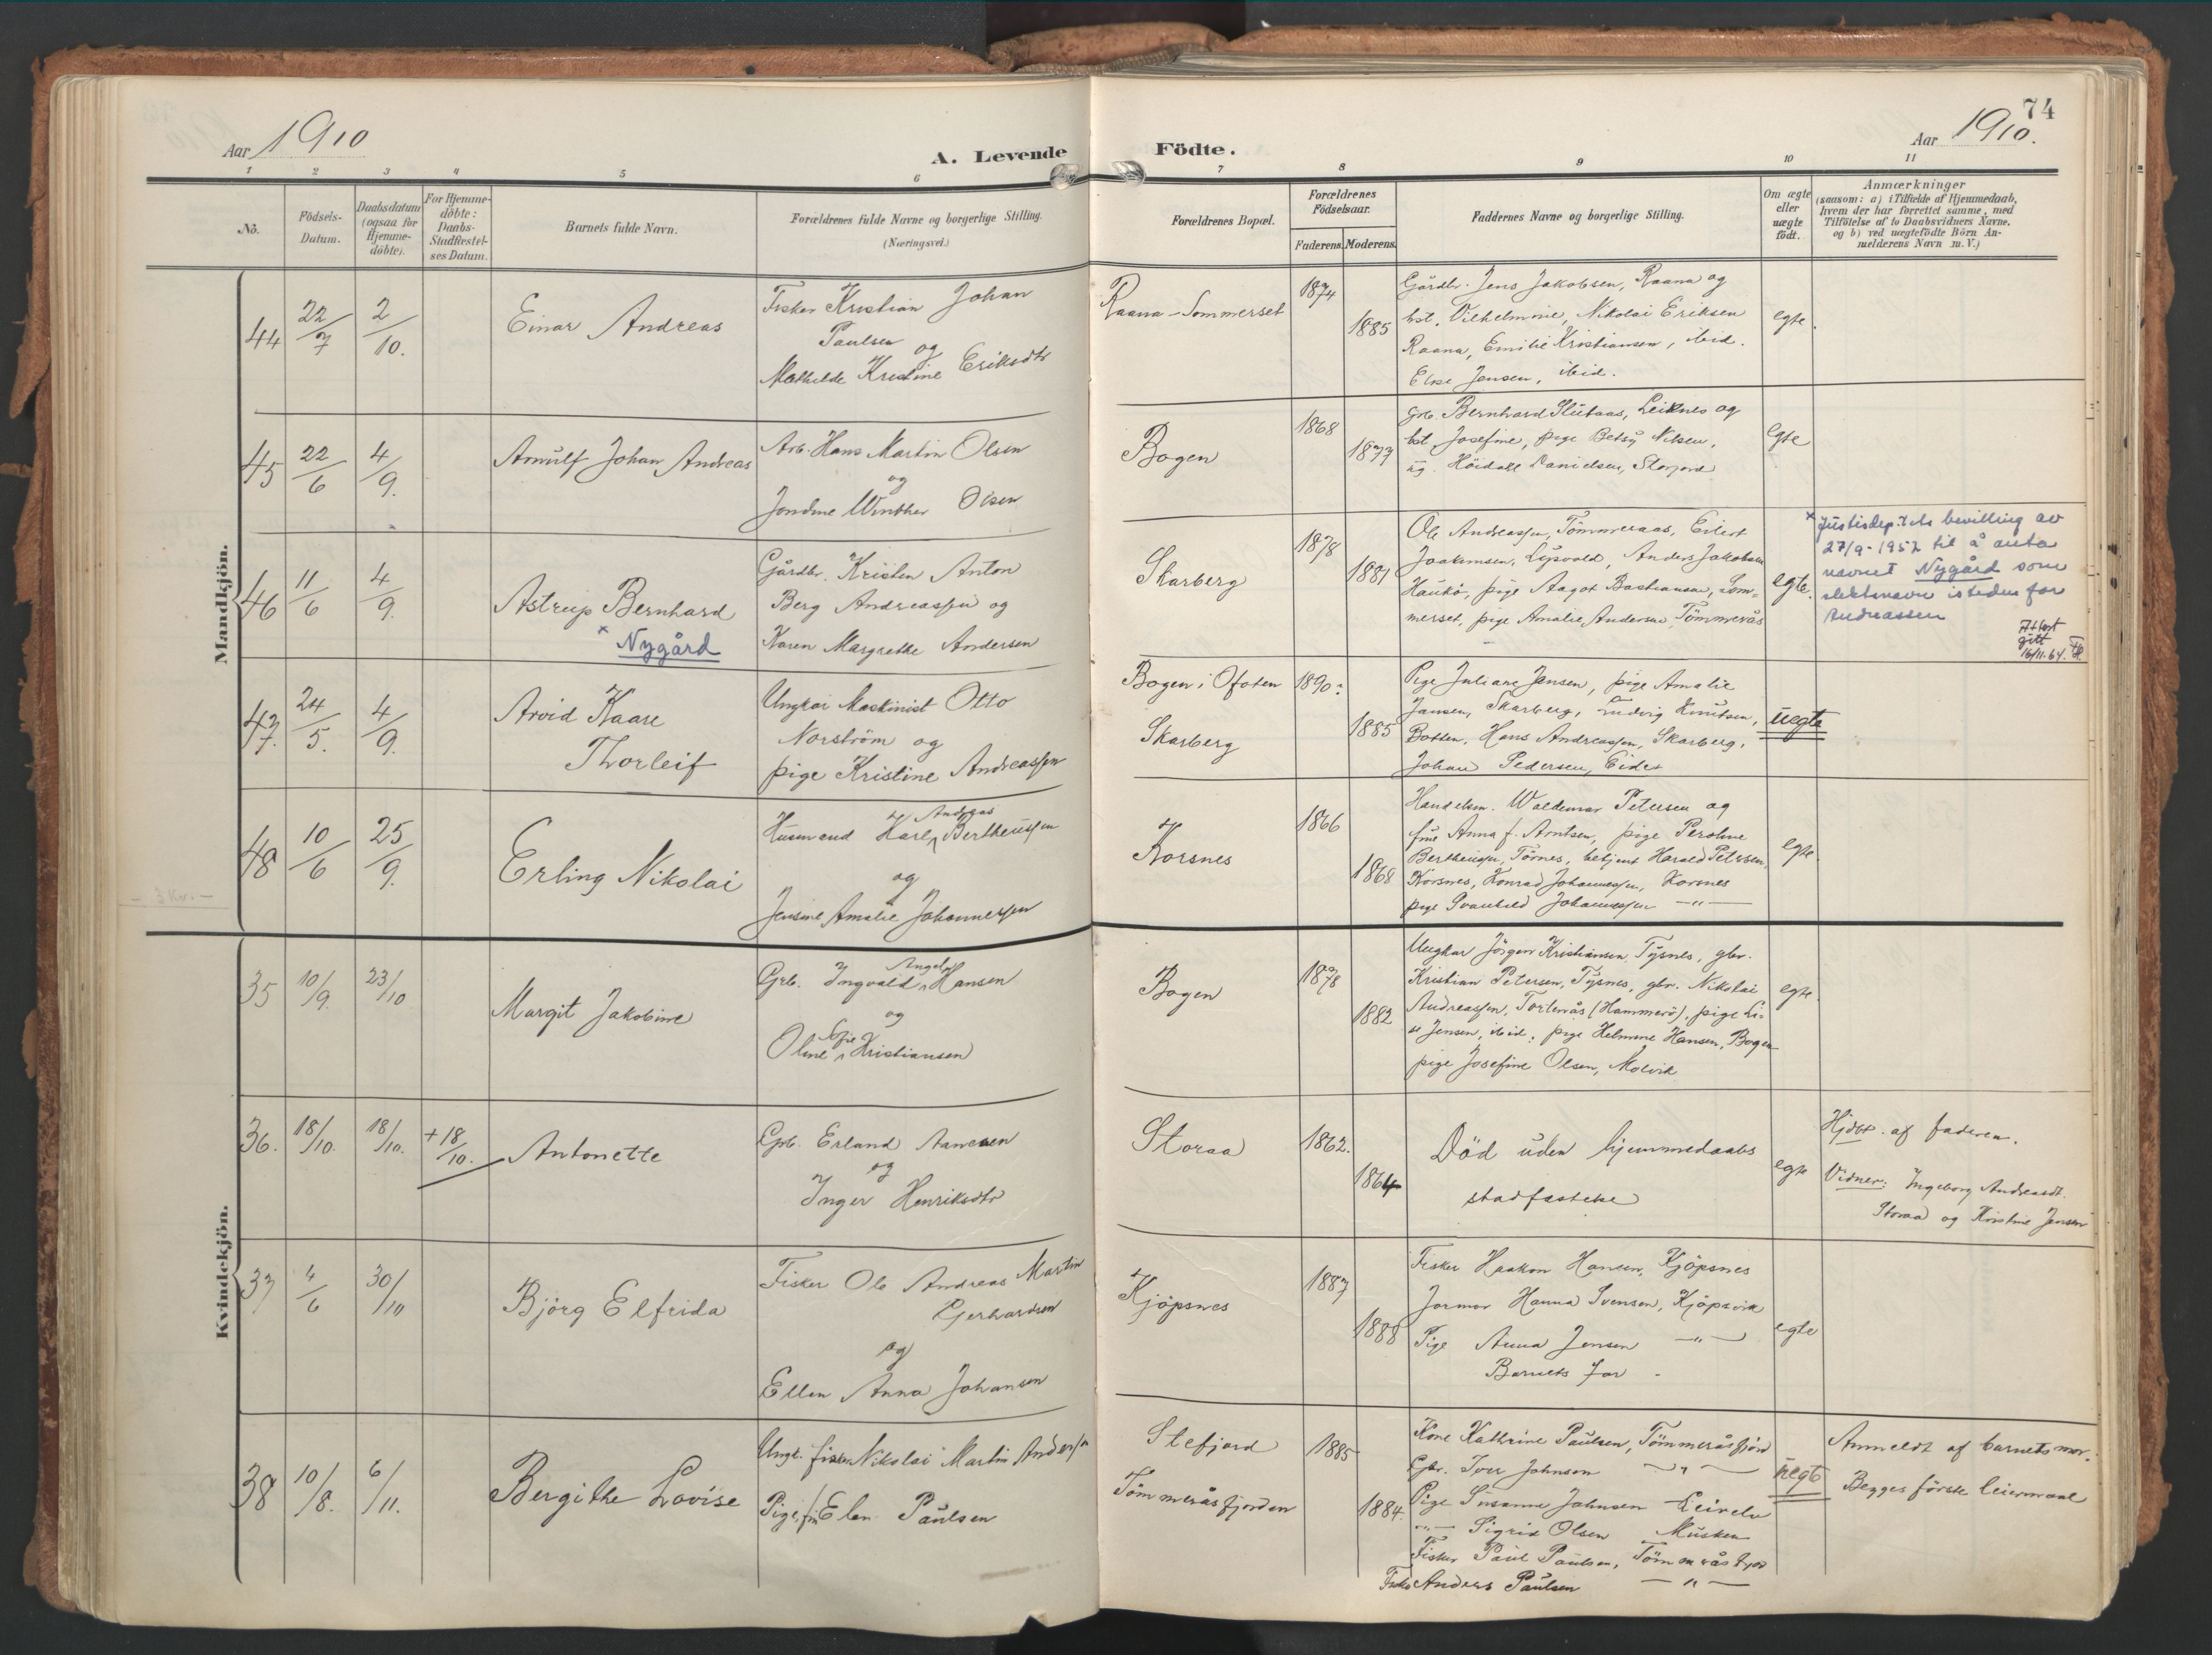 74
Aar 1910
A. Levende Födte.
Aar 1910.
1 2 3 4 5 6 7 8 9 10 11
No.
Födsels-Datum.
Daabsdatum (ogsaa for Hjemme-döbte).
For Hjemme-döbte: Daabs-Stadfæstel-ses Datum.
Barnets fulde Navn.
Forældrenes fulde Navne og borgerlige Stilling.
(Næringsvei.)
Forældrenes Bopæl.
Forældrenes Födselsaar.
Faderens. Moderens.
Faddernes Navne og borgerlige Stilling.
Om ægte eller uægte födt.
Anmærkninger
(saasom: a) i Tilfælde af Hjemmedaab,
hvem der har forrettet samme, med
Tilföielse af to Daabsvidners Navne.
og b) ved uægtefödte Börn An-
melderens Navn m. V.)
Mandkjön.
44 22/7 2/10.
Einar Andreas
Fisker Kristian Johan
Paulsen og
Mathilde Kristine Eriksdtr
Raana - Sommerset
1874
1885
Gårdbr. Jens Jakobsen, Raana og
hst. Vilhelmine, Nikolai Eriksen
Raana, Emilie Kristiansen, ibid.
Else Jensen, ibid.
egte.
45 22/6 4/9.
Arnulf Johan Andreas
Arb. Hans Martin Olsen
og
Jondine Winther Olsen
Bogen
1868
1877
Grb. Bernhard Leiknes og
hst. Josefine, pige Betsy Nilsen,
ug. Danielsen, Storjord
egte
46 11/6 4/9.
Astrup Bernhard
× Nygård
Gårdbr. Kristen Anton
Berg Andreassen og
Karen Margrethe Andersen
Skarberg
1878
1881
Ole Andreassen, Tömmeraas, Eilert
Joakimsen, Anders Jakobsen
Haukö, pige Aagot Bastiansen, Som-
merset, pige Amalie Andersen, Tömmerås
egte.
× Justisdep.tets bevilling av
27/9-1952 til å anta
navnet Nygård som
slektsnavn isteden for
Andreassen
Attest
gitt
16/11.64.
47. 24/5. 4/9.
Arvid Kaare
Thorleif
Ungkar Maskinist Otto
Norström og
pige Kristine Andreassen
Bogen i Ofoten
Skarberg
1890:
1885
Pige Juliane Jensen, pige Amalie
Jansen, Skarberg, Ludvig Knutsen,
Botten, Hans Andreassen, Skarberg,
Johan Pedersen, Eidet
uegte
48 10/6 25/9.
- 3 Kr. -
Erling Nikolai
Husmand Karl Andreas Bertheussen
og
Jensine Amalie Johannessen
Korsnes
1866
1868
Handelsm. Waldemar Petersen og
frue Anna f. Arntsen, pige Peroline
Bertheussen, Törnes, betjent Harald Petersen,
Korsnes, Konrad Johannessen, Korsnes
pige Svanhild Johannessen —"—
egte.
Kvindekjön.
35 10/9. 23/10
Margit Jakobine
Grb. Ingvald Angel Hansen
og
Oline Sofie Kristiansen
Bogen
1878
1882
Ungkar Jörgen Kristiansen, Tysnes, gbr.
Kristian Petersen, Tysnes, gbr. Nikolai
Andreassen, Tortenås (Hammerö), pige Li-
se Jensen, ibid, pige Helmine Hansen, Bogen
pige Josefine Olsen, Molvik
egte.
36. 18/10. 18/10. + 18/10.
Antonette
Grb. Erland Aanesen
og
Inger Henriksdtr
Storaa
1862.
1864
Död uden hjemmedaabs
stadfæstelse
egte
Hjdbt. af faderen.
Vidner: Ingeborg Andreasdt.
Storaa og Kristine Jensen
37 4/6 30/10
Björg Elfrida
Fisker Ole Andreas Martin
Gerhardsen
og
Ellen Anna Johansen
Kjöpsnes
1887
1888
Fisker Haakon Hansen, Kjöpsnes
Jormor Hanna Svensen, Kjöpsvik
Pige Anna Jensen —"—
Barnets far -
egte
38 10/8. 6/11.
Bergithe Lovise
Ungk. fisker Nikolai Martin Andersen
Pige Elen Paulsen
Stefjord
Tömmeråsfjorden
1885
1884.
Kone Kathrine Paulsen, Tömmeråsfjord
Gbr. Iver Johnsen —"—
Pige Susanne Johnsen Leirelv
—"— Sigrid Olsen Musken
Fisker Paul Paulsen, Tömmeråsfjord
Fisker Anders Paulsen —"—
uegte
Anmeldt af barnets mor.
Begges förste leiermaal